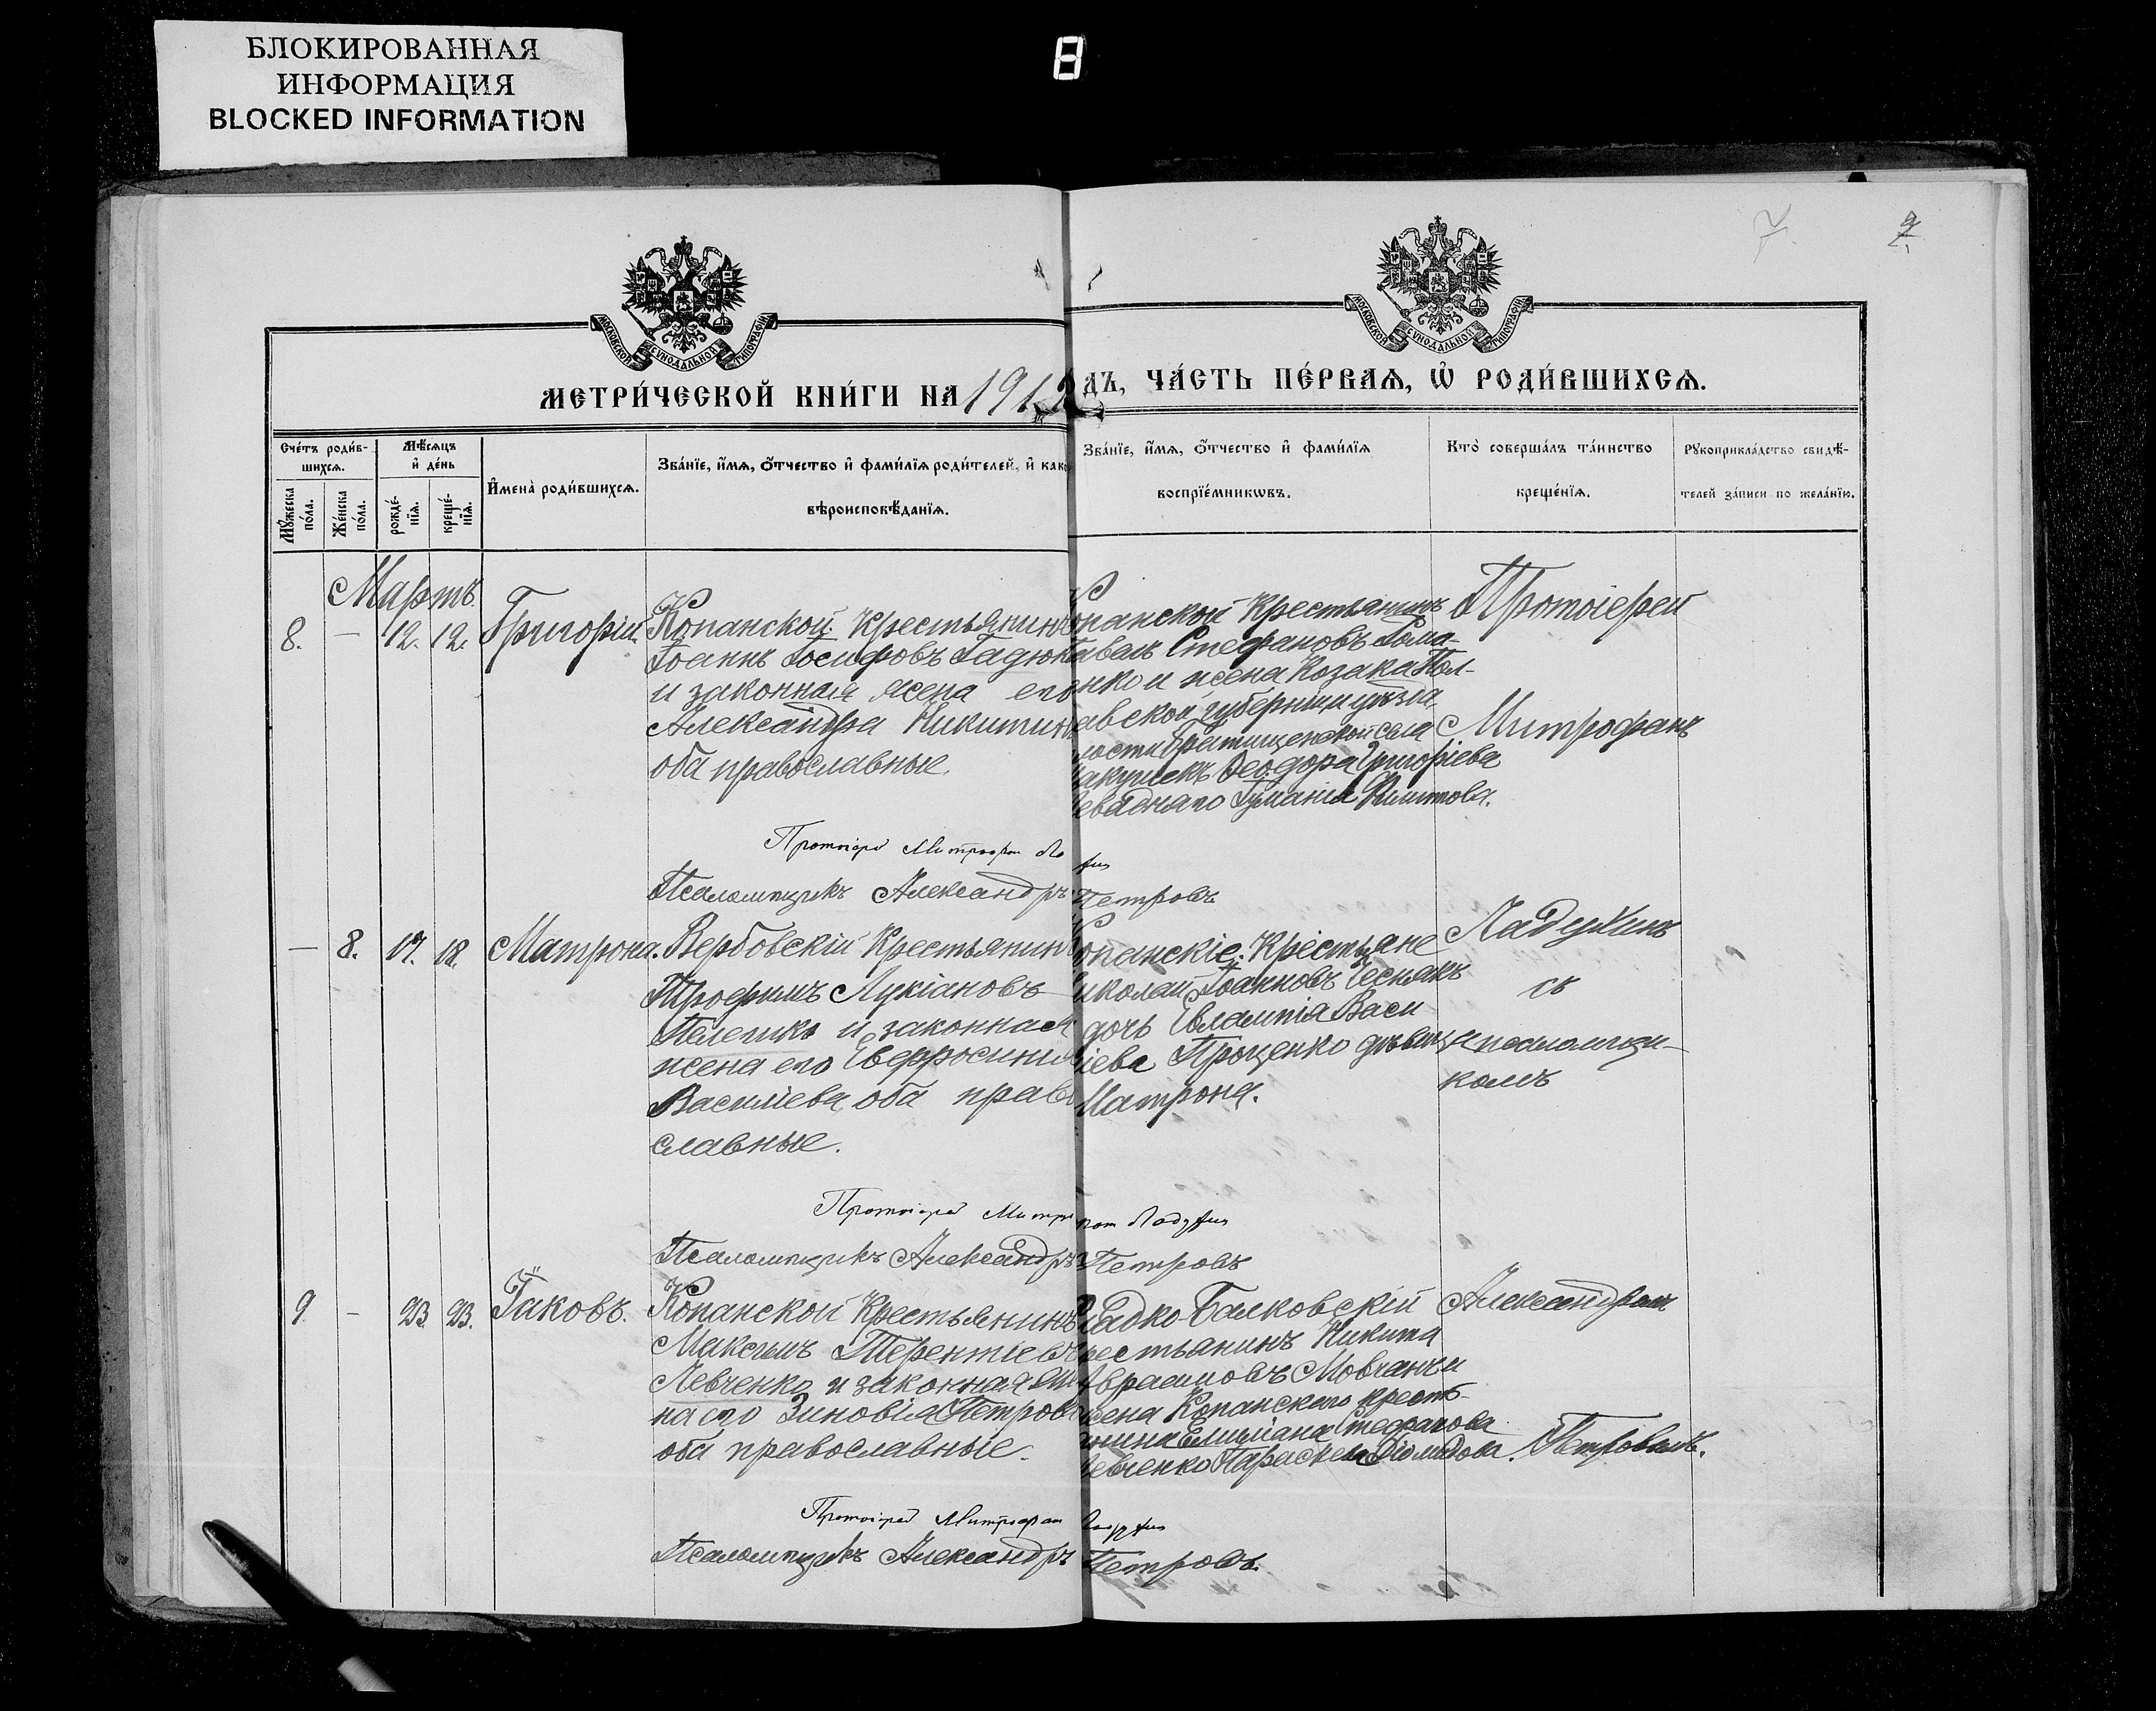 БЛОКИРОВАННАЯ
ИНФОРМАЦИЯ
BLOCKED INFORMATION
8
7.
МОСКОВСКОЙ СѴНОДАЛЬНОЙ ТИПОГРАФІИ
МОСКОВСКОЙ СѴНОДАЛЬНОЙ ТИПОГРАФІИ
МЕТРИ́ЧЕСКОЙ КНИ́ГИ НА 1912
ДЪ, ЧА́СТЬ ПЕ́РВАЯ, Ѡ҆ РОДИ́ВШИХСЯ.
Сче́тъ роди́в-
шихсѧ.
Мꙋ́жеска
по́ла.
Же́нска
по́ла.
Мѣ́сѧцъ
и҆ де́нь
рожде́-
нїѧ.
креще́-
нїѧ.
И҆мена̀ роди́вшихсѧ.
Зва́нїе, и҆́мѧ, ѻ҆́тчество и҆ фами́лїѧ роди́телей, и҆ како
вѣроисповѣ́данїѧ.
Зва́нїе, и҆́мѧ, ѻ҆́тчество и҆ фами́лїѧ
воспрїе́мникѡвъ.
Кто̀ соверша́лъ та́инство
креще́нїѧ.
Рꙋкоприкла́дство свидѣ́-
телей за́писи по жела́нїю.
Мартъ
8. — 12. 12. Григорій.
Копанской Крестьянин
Іоаннъ Іосифовъ Гадюк
и законная жена его
Александра Никитин
оба православные.
опанской Крестьянинъ
авелъ Стефановъ Гома-
нко и жена Козака Пол-
авской губерніи уѣзда
ости села
Ѳеодора Григоріева
Филипова.
Протоіерей
Митрофанъ
Протоіерей Митрофан Ла
Псаломщикъ Александръ Петровъ
— 8. 17. 18. Матрона.
Вербовскій Крестьянин
Трофимъ Лукіановъ
и законная
жена его Евфросинія
Василіева оба право
славные.
опанскіе: Крестьяне
иколай Іоанновъ Чеснокъ
дочь Евлампія Васи
іева Проценко дѣвица
Матрона.
Ладухинъ
съ
псаломщи-
комъ
Протоіерей Митро Ладухин
Псаломщикъ Александръ Петровъ
9. — 23. 23. Іаковъ.
Копанской Крестьянинъ
Максимъ Терентіевъ
Левченко и законная же
на его Зиновія Петрова
оба православные.
ладко-Балковскій
рестьянинъ Никита
Авраамовъ Мовчанъ и
жена Копанского кресть-
янина Емиліана Стефанова
Левченко Параскева Діомидова.
Александромъ
Петровымъ.
Протоіерей Митрофан Ладухин
Псаломщикъ Александръ Петровъ.